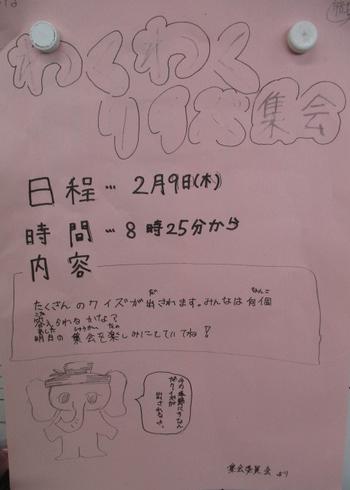 わくわく
クイズ集会
日程…2月9日(木)
時間…8時25分から
内容
たくさんのクイズが出されます。みんなは何個
答えられるかな？
明日の集会を楽しみにしていてね！
集会委員会より